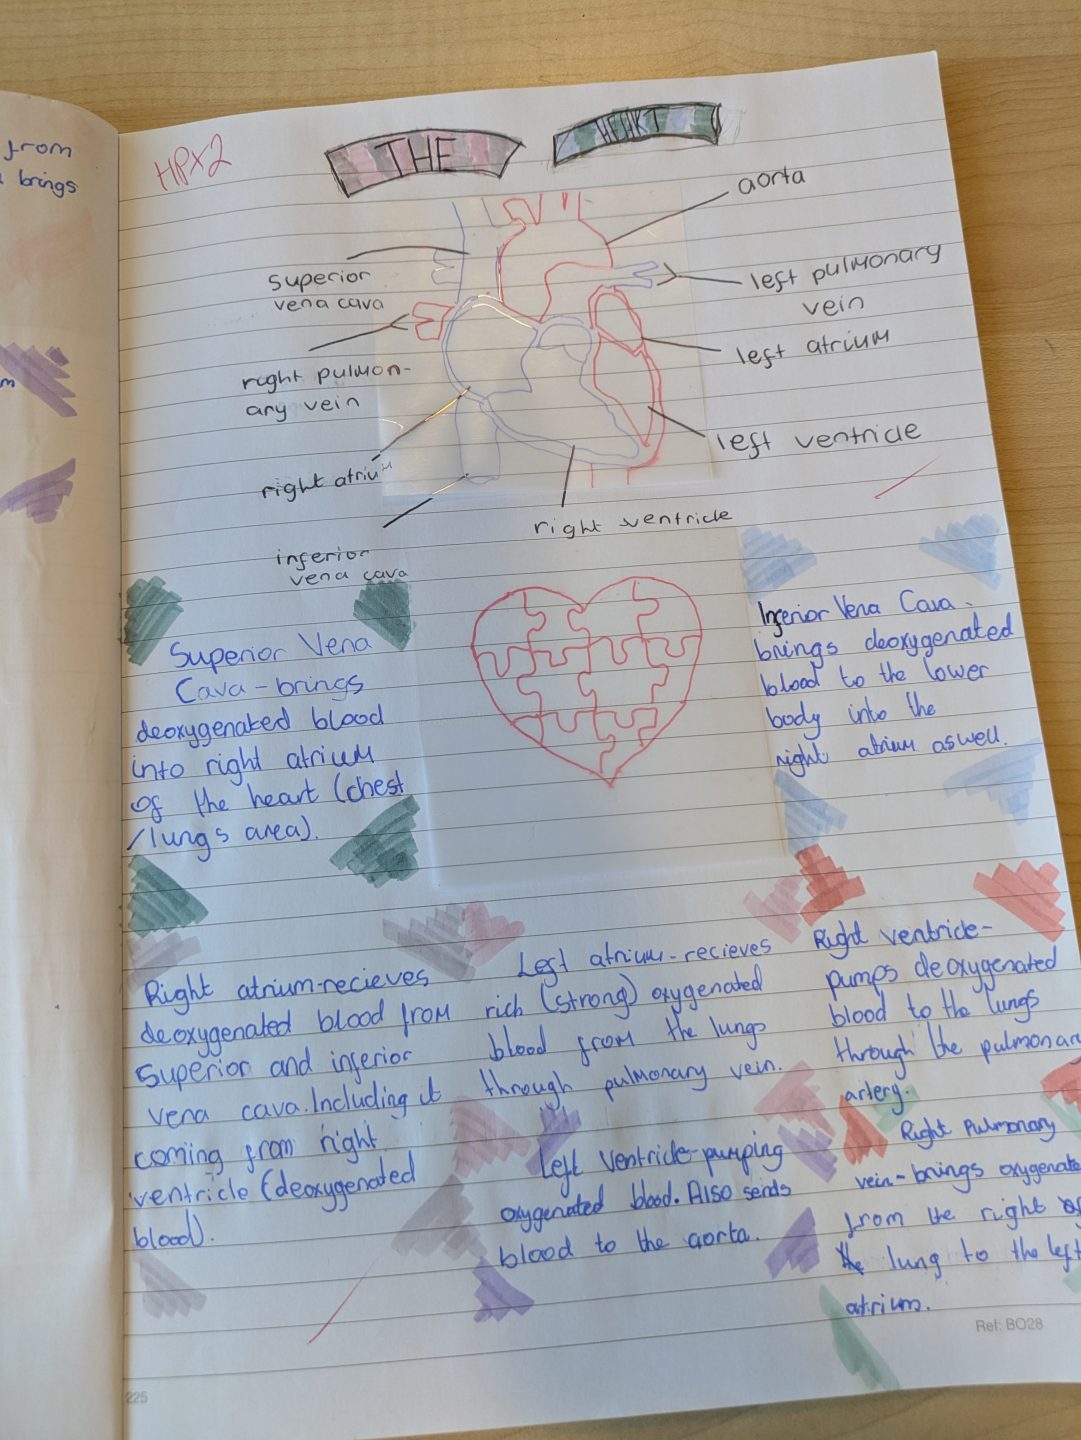 from
brings
m
HPx2
THE HEART
aorta
superior
vena cava
left pulmonary
vein
right pulmon-
ary vein
left atrium
left ventricle
right atrium
right ventricle
inferior
vena cava
Superior Vena
Cava - brings
deoxygenated blood
into right atrium
of the heart (chest
/lungs area).
Inferior Vena Cava -
brings deoxygenated
blood to the lower
body into the
right atrium aswell.
Right atrium-recieves
deoxygenated blood from
Superior and inferior
vena cava. Including it
coming from right
ventricle (deoxygenated
blood).
Left atrium - recieves
rich (strong) oxygenated
blood from the lungs
through pulmonary vein.
Left Ventricle-pumping
oxygenated blood. Also sends
blood to the aorta.
Right ventricle-
pumps deoxygenated
blood to the lungs
through the pulmonary
artery.
Right Pulmonary
vein - brings oxygenate
from the right of
the lung to the left
atrium.
Ref: BO28
225